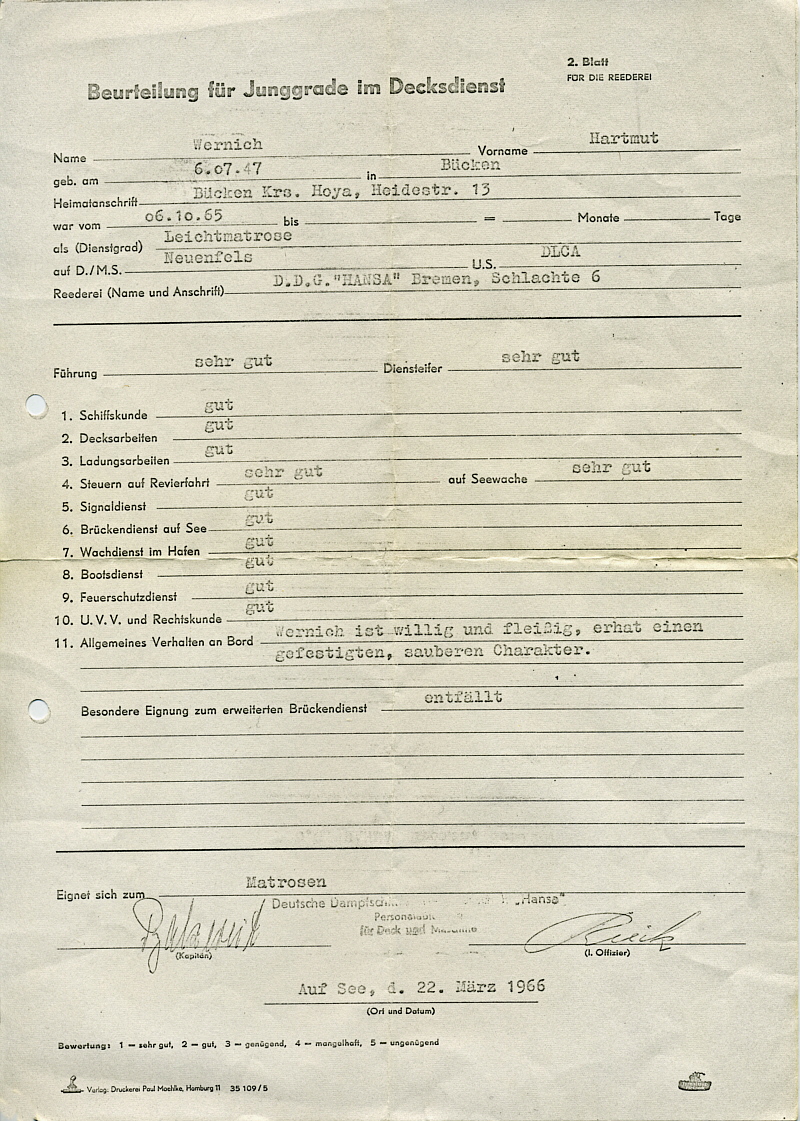 2. Blatt
FÜR DIE REEDEREI
Beurteilung für Junggrade im Decksdienst
Name Wernich Vorname Hartmut
geb. am 6.07.47 in Bücken
Heimatanschrift Bücken Krs. Hoya, Heidestr. 13
war vom 06.10.65 bis = Monate Tage
als (Dienstgrad) Leichtmatrose
auf D./M.S. Neuenfels U.S. DLCA
Reederei (Name und Anschrift) D.D.G."HANSA" Bremen, Schlachte 6
Führung sehr gut Diensteifer sehr gut
1. Schiffskunde gut
2. Decksarbeiten gut
3. Ladungsarbeiten gut
4. Steuern auf Revierfahrt sehr gut auf Seewache sehr gut
5. Signaldienst gut
6. Brückendienst auf See gut
7. Wachdienst im Hafen gut
8. Bootsdienst gut
9. Feuerschutzdienst gut
10. U.V.V. und Rechtskunde gut
11. Allgemeines Verhalten an Bord Wernich ist willig und fleißig, erhat einen
gefestigten, sauberen Charakter.
Besondere Eignung zum erweiterten Brückendienst entfällt
Eignet sich zum Matrosen
Deutsche "Hansa"
für Deck und
(Kapitän) (I. Offizier)
Auf See, d. 22. März 1966
(Ort und Datum)
Bewertung: 1 — sehr gut, 2 — gut, 3 — genügend, 4 — mangelhaft, 5 — ungenügend
Verlag: Druckerei Paul Moehlke, Hamburg 11 35 109/5